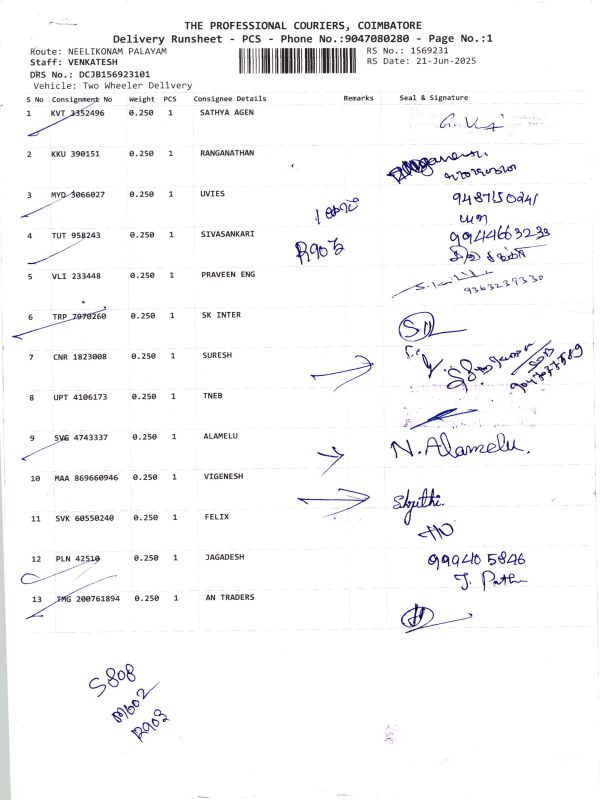 THE PROFESSIONAL COURIERS, COIMBATORE
Delivery Runsheet - PCS - Phone No.:9047080280 - Page No.:1
Route: NEELIKONAM PALAYAM RS No.: 1569231
Staff: VENKATESH RS Date: 21-Jun-2025
DRS No.: DCJB156923101
Vehicle: Two Wheeler Delivery
S No Consignment No Weight PCS Consignee Details Remarks Seal & Signature
1 KVT 3352496 0.250 1 SATHYA AGEN
2 KKU 390151 0.250 1 RANGANATHAN
3 MYD 3066027 0.250 1 UVIES
4 TUT 958243 0.250 1 SIVASANKARI R903 9944663233
5 VLI 233448 0.250 1 PRAVEEN ENG
9363239330
6 TRP 7970260 0.250 1 SK INTER
7 CNR 1823008 0.250 1 SURESH
8 UPT 4106173 0.250 1 TNEB
9 SVG 4743337 0.250 1 ALAMELU N. Alamelu.
10 MAA 869660946 0.250 1 VIGENESH
11 SVK 60550240 0.250 1 FELIX
12 PLN 42510 0.250 1 JAGADESH 999405846
13 TMG 200761894 0.250 1 AN TRADERS
S808
M602
R903